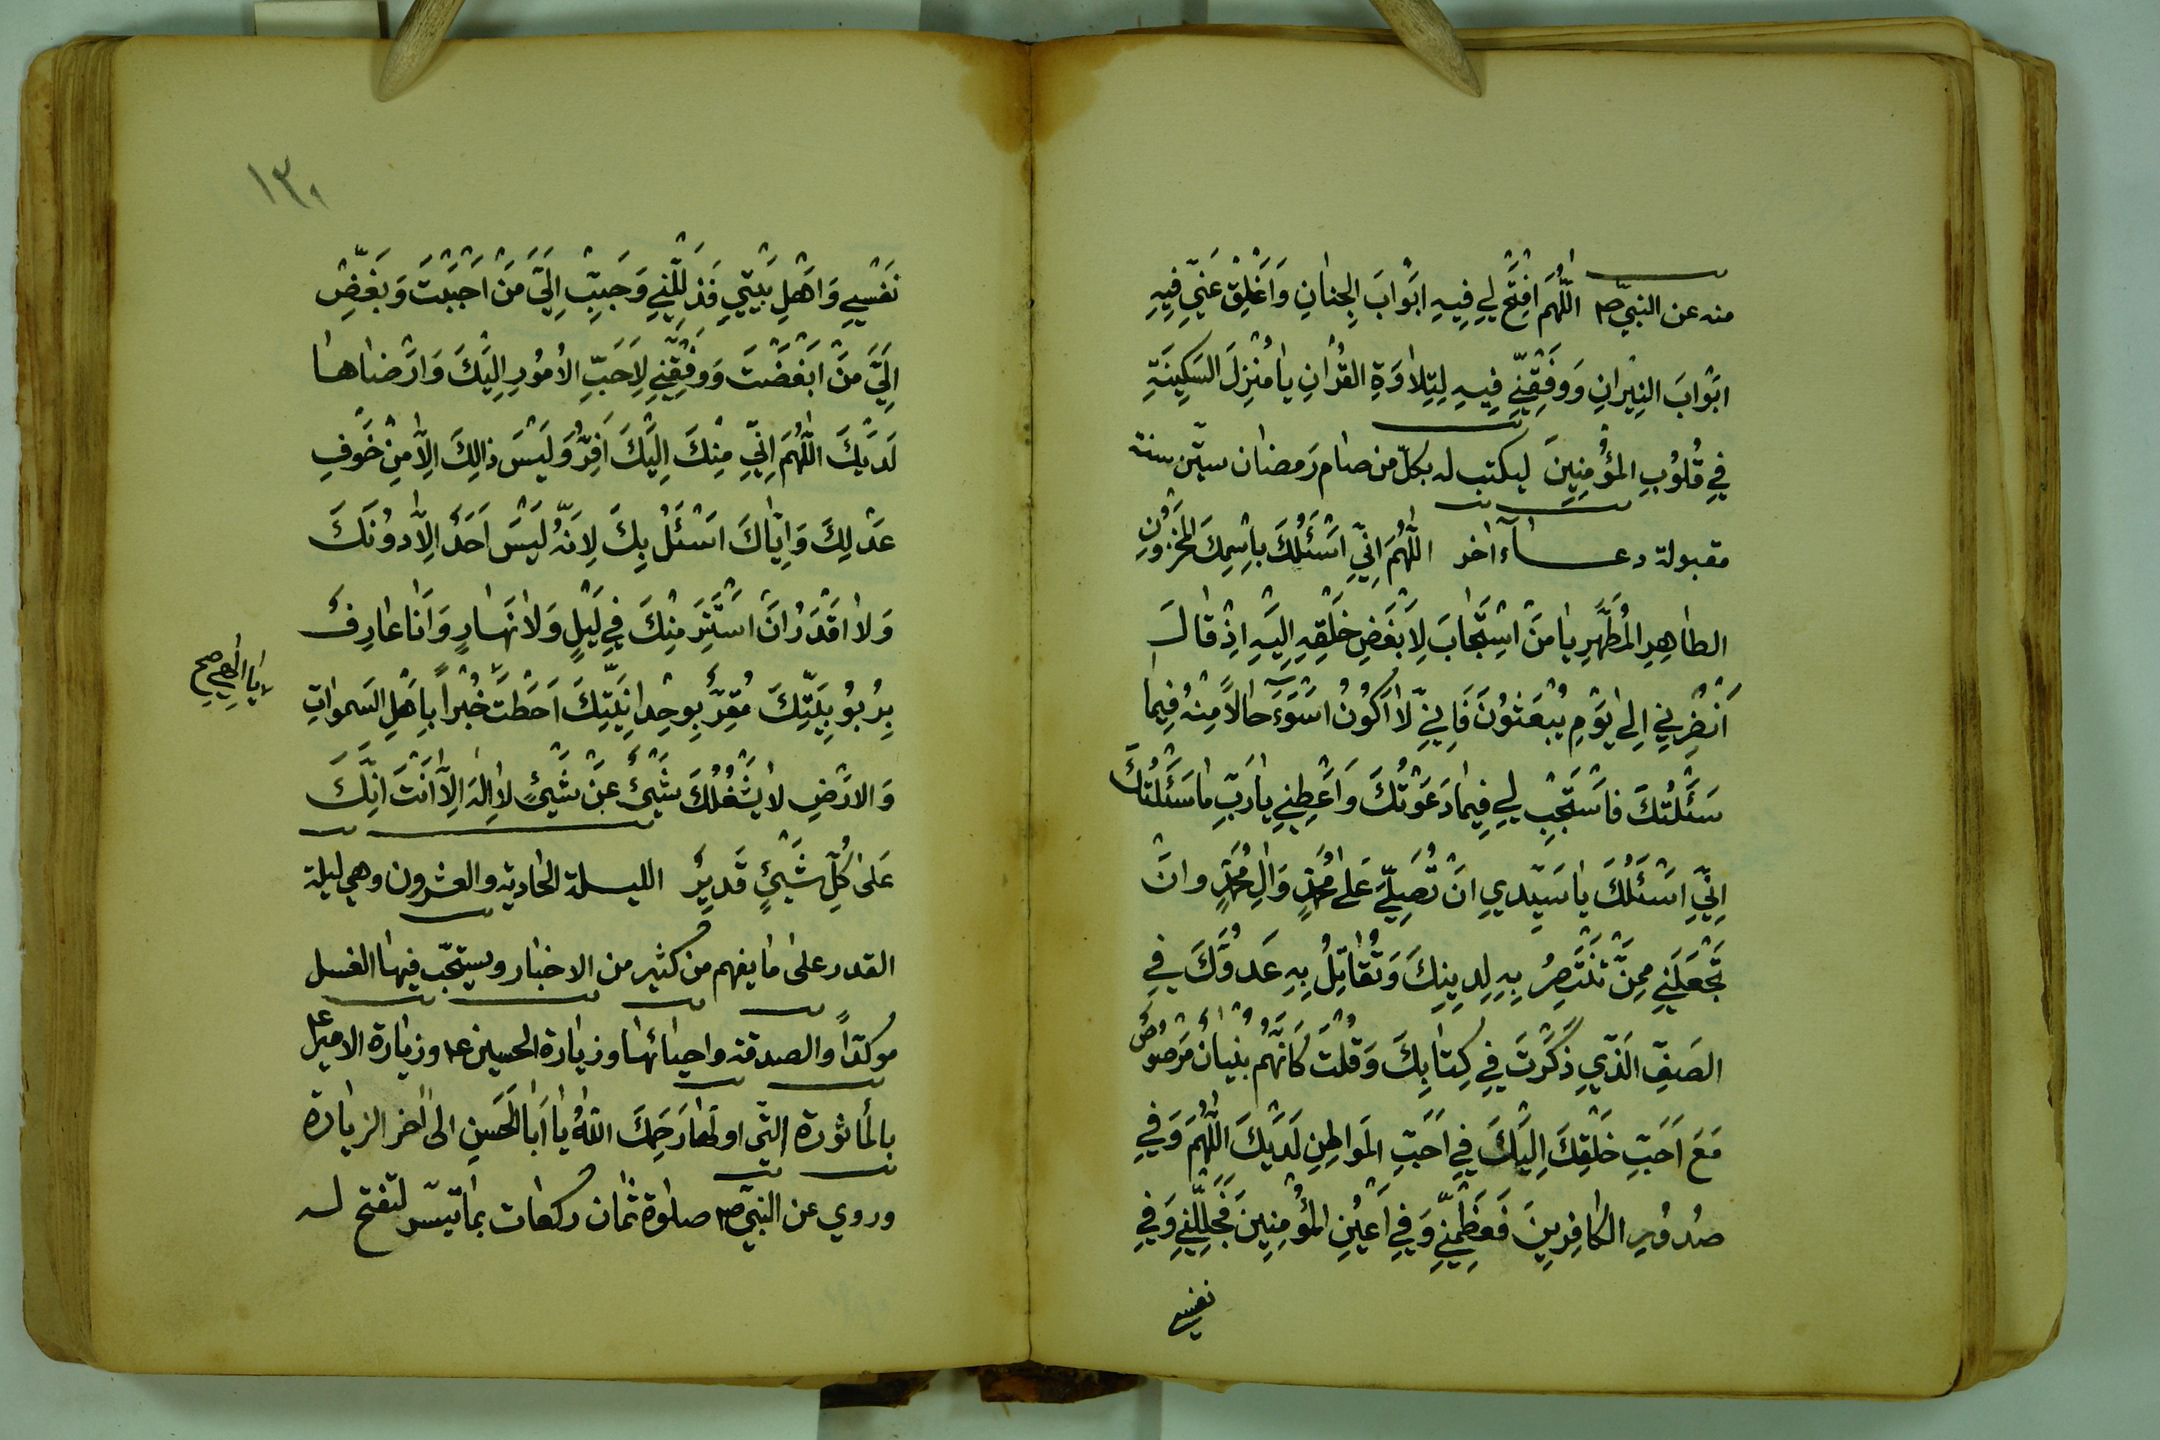 منه عن النبيّ ص اَللّٰهُمَّ افْتَحْ لِي فِيهِ اَبْوٰابَ الجِنٰانِ وَاَغْلِقْ عَنّي فِيهِ
اَبْوٰابَ النِيرٰانِ وَوَفِّقْنِي فِيهِ لِتِلاٰوَةِ القُرْاٰنِ يٰا مُنْزِلَ السَكِينَةِ
فِي قُلُوبِ المُؤْمِنِينَ ليكتب له بكلّ من صام رَمضان ستّين سنة
مقبولة دعــاء اٰخر اَللّٰهُمَ اِنّي اَسْئَلُكَ بِاسْمِكَ المَخْزُونِ
الطٰاهِرِ المُطَهَّرِ يٰا مَنْ اسْتَجٰابَ لِاَبْغَضِ خَلْقِهِ اِلَيْهِ اِذْ قٰالَ
اَنْظِرْنِي اِلىٰ يَوْمِ يُبْعَثُونَ فَاِنّي لاٰ اَكُونُ اَسْوَءَ حٰالاً مِنْهُ فِيمٰا
سَئَلْتُكَ فٰاسْتَجِبْ لِي فِيمٰا دَعَوْتُكَ وَاَعْطِنِي يٰا رَبِّ مٰا سَئَلْتُكَ
اِنّي اَسْئَلُكَ يٰا سَيّدي اَنْ تُصَلِّيَ عَلىٰ مُحَمَّدٍ وَاٰلِ مُحَمَّدٍ وان
تَجْعَلَنِي مِمَّنْ تَنْتَصِرُ بِهِ لِدِينِكَ وَتُقٰاتِلُ بِهِ عَدُوَّكَ فِي
الصَفِّ الَذّي ذَكَرْتَ فِي كِتٰابِكَ وَقُلْتَ كَاَنَّهُم بُنْيٰانٌ مَرْصُوصٌ
مَعَ اَحَبِّ خَلْقِكَ اِلَيْكَ فِي اَحَبِّ المَوٰاطِنِ لَدَيْكَ اَللّٰهُمَ وَفِي
صُدُورِ الكٰافِرِينَ فَعَظِّمْنِي وَفِي اَعْيُنِ المُؤْمِنِينَ فَجَلِّلْنِي وَفِي
نفسي
١٣٠
نَفْسِي وَاَهْلِ بَيْتِي فَذَلِّلْنِي وَحَبِّبْ اِلَيَّ مَنْ اَحْبَبْتَ وَبَغِّضْ
اِلَيَّ مَنْ اَبْغَضْتَ وَوَفِّقْنِي لِاَحَبِّ الاُمُورِ اِلَيْكَ وَاَرْضٰاهٰا
لَدَيْكَ اَللّٰهُمَ اِنّي مِنْكَ اِلَيْكَ اَفِرُّ وَلَيْسَ ذٰالِكَ اِلاّٰ مِنْ خَوْفِ
عَدْلِكَ وَاِيّٰاكَ اَسْئَلُ بِكَ لِاَنَّهُ لَيْسَ اَحَدٌ اِلاّٰ دُونَكَ
وَلاٰ اَقْدِرُ اَنْ اَسْتَتِرَ مِنْكَ فِي لَيْلٍ وَلاٰ نَهٰارٍ وَاَنَا عٰارِفٌ
بِرُبُوبِيَّتِكَ مُقِرٌّ بِوحْدٰانِيَّتِكَ اَحَطْتَ خُبْراً بِاَهْلِ السَمٰوٰاتِ
يٰا اِلٰهي صح
وَالاَرْضِ لاٰ يَشْغُلُكَ شَيْئٌ عَنْ شَيْئٍ لاٰ اِلٰهَ اِلاّٰ اَنْتَ اِنَّكَ
عَلىٰ كُلِّ شَيْئٍ قَدِيرٌ الليلة الحٰادية والعشرون وهي ليلة
القدر علىٰ مٰا يفهم من كثير من الاخبٰار ويستحّب فيهٰا الغسل
مُوكدّاً والصدقة واحيٰائهٰا وزيٰارة الحسين ع وزيٰارة الامير ع
بالمأثورة الّتي اولهٰا رَحِمَكَ اللهُ يٰا اَبَا الحَسَنِ الىٰ اٰخر الزيٰارة
وروي عن النبيّ ص صلوٰة ثمٰان ركعات بمٰا تيسّر لتفتح له